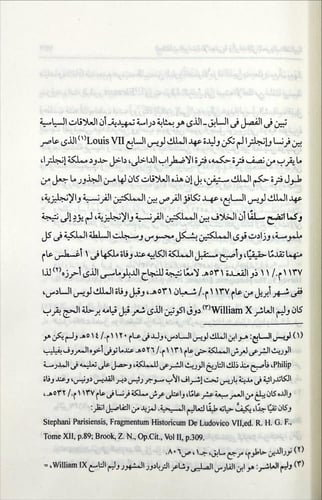 تبين فى الفصل فى السابق-الذى هو بمثابة دراسة تمهيدية- أن العلاقات السياسية
بين فرنسا وإنجلترا لم تكن وليدة عهد الملك لويس السابع Louis VII(١) الذى عاصر
ما يقرب من نصف فترة حكمه، فترة الاضطراب الداخلى، داخل حدود مملكة إنجلترا،
طول فترة حكم الملك ستيفن، بل إن هذه العلاقات كان لها من الجذور ما جعل من
عهد الملك لويس السابع، عهد تكافؤ الفرص بين المملكتين الفرنسية والإنجليزية،
وكما اتضح سلفًا أن الخلاف بين المملكتين الفرنسية والإنجليزية، لم يؤد إلى نتيجة
ملموسة، وزادت قوى المملكتين بشكل محسوس وسجلت السلطة الملكية فى كل
منهما تقدمًا حقيقيًا، وأصبح مستقبل المملكة الكابيه عند وفاة ملكها فى ١ أغسطس عام
١١٣٧م./ ١١ ذو القعدة ٥٣١هـ. لامعًا نتيجة للنجاح الدبلوماسى الذى أحرزه(٢) لذا
ففى شهور أبريل من عام ١١٣٧م./ شعبان ٥٣١هـ، وقبل وفاة الملك لويس السادس،
كان وليم العاشر William X(٣) دوق اكوتين الذى شعر قبل قيامه برحلة الحج بقرب
(١) لويس السابع: هو ابن الملك لويس السادس، ولد فى عام ١١٢٠م./ ٥١٤هـ. ولم يكن هو
الوريث الشرعى لعرش المملكة حتى عام ١١٣١م/ ٥٢٦هـ، عندما توفى أخوه المعروف بفيليب
Philip، فأصبح منذ ذلك التاريخ الوريث الشرعى للمملكة، وحصل على تعليمه فى المدرسة
الكاتدرائية فى مدينة باريس تحت إشراف الأب سوجر رئيس دير القديس دونيس، وعند وفاة
والده كان يبلغ من العمر سبعة عشر عامًا، واعتلى عرش مملكة فرنسا فى عام ١١٣٧م./ ٥٣٢هـ،
وكان تقيًا جدًا، يكيف حياته طبقًا لتعاليم المسيحية. لمزيد من التفاصيل انظر:
Stephani Parisiensis, Fragmentum Historicum De Ludovico VII,ed. R. H. G. F.,
Tome XII, p.89; Brook, Z. N., Op.Cit., Vol II, p.309.
(٢) نور الدين حاطوم، مرجع سابق، جـ١، ص٨٠٦.
(٣) وليم العاشر: هو ابن الفارس الصليبى وشاعر التربادور المشهور وليم التاسع William IX، =